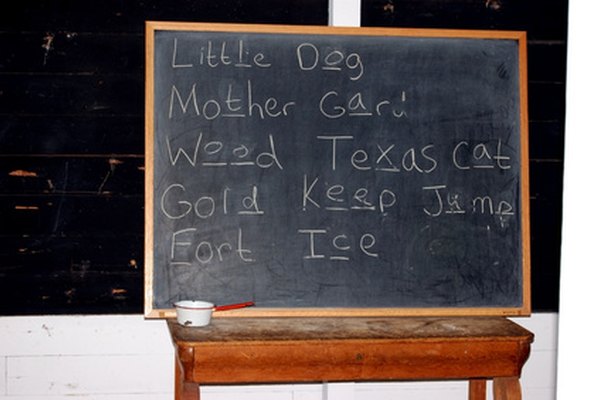 Little Dog
Mother
Wood Texas Cat
Gold Keep Jump
Fort Ice